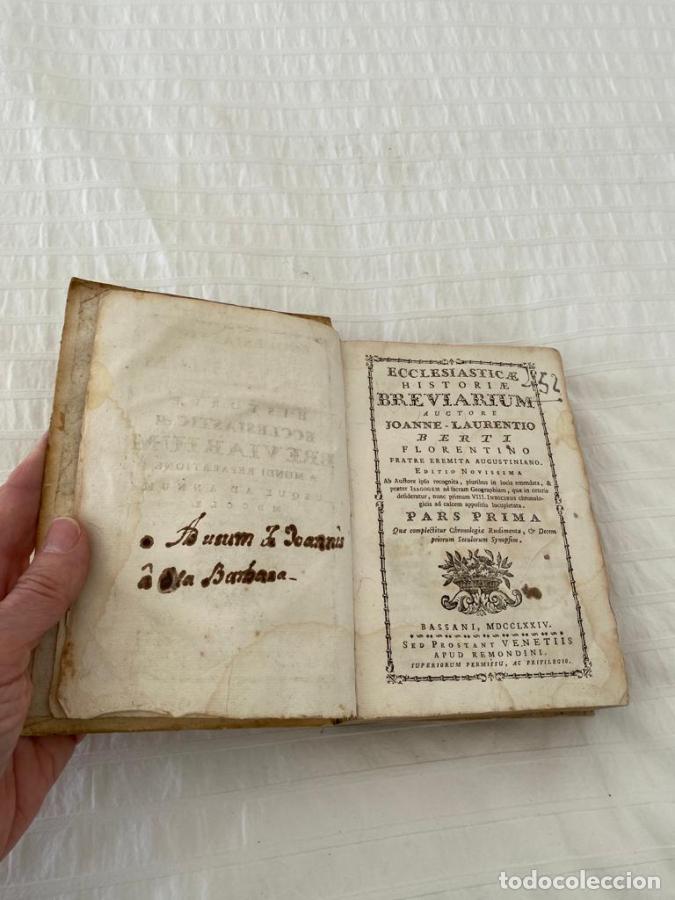 Ad usum Fr Joannis
â Sta Barbara_
ECCLESIASTICÆ
HISTORIÆ
BREVIARIUM
AUCTORE
JOANNE-LAURENTIO
BERTI
FLORENTINO
FRATRE EREMITA AUGUSTINIANO.
EDITIO NOVISSIMA
Ab Auctore ipso recognita, pluribus in locis emendata, &
præter ISAGOGEM ad sacram Geographiam, quæ in ceteris
desideratur, nunc primum VIII. INDICIBUS chronolo-
gicis ad calcem appositis locupletata.
PARS PRIMA
Quæ complectitur Chronologiæ Rudimenta, & Decem
priorum Seculorum Synopsim.
BASSANI, MDCCLXXIV.
SED PROSTANT VENETIIS
APUD REMONDINI.
SUPERIORUM PERMISSU, AC PRIVILEGIO.
52
todocoleccion
todocoleccion.net